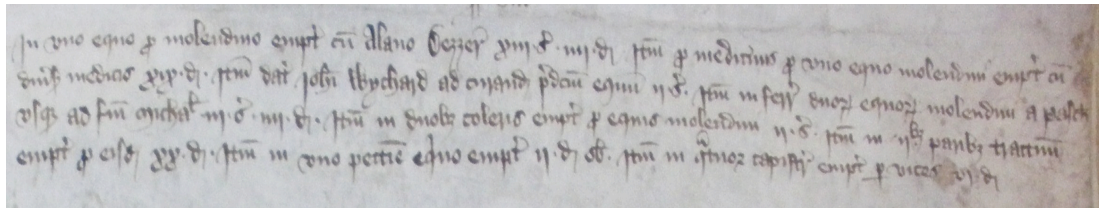 In vno equo ꝑ molendino empt̉ cū Alano Gezzer̉ xiii s̉ · iiii · dͥ Itm̄ ꝑ medicinis ꝑ vno equo molendini empt̉ cū
diủsˀ medicis xix · dͥ · Itm̄ dat̉ Joħi Wychard ad curand p̉dcm̄ equū ii · s̉ · Itm̄ in ferr̉ duoꝝ equoꝝ molendini a pasch
vsqꝫ ad fm̄ Micħa iii · s̉ · iiii · dͥ · Itm̄ in duobꝫ coleris empt̉ ꝑ equis molendini ii · s̉ · Itm̄ in · iibꝫ paribꝫ tractuū
empt̉ ꝑ eisd xx · dͥ · Itm̄ in vno pectīe equino empt̉ ii · dͥ ob̉ · Itm̄ in qᵃtuor capistr̉ empt̉ ꝑ vices vi · dͥ